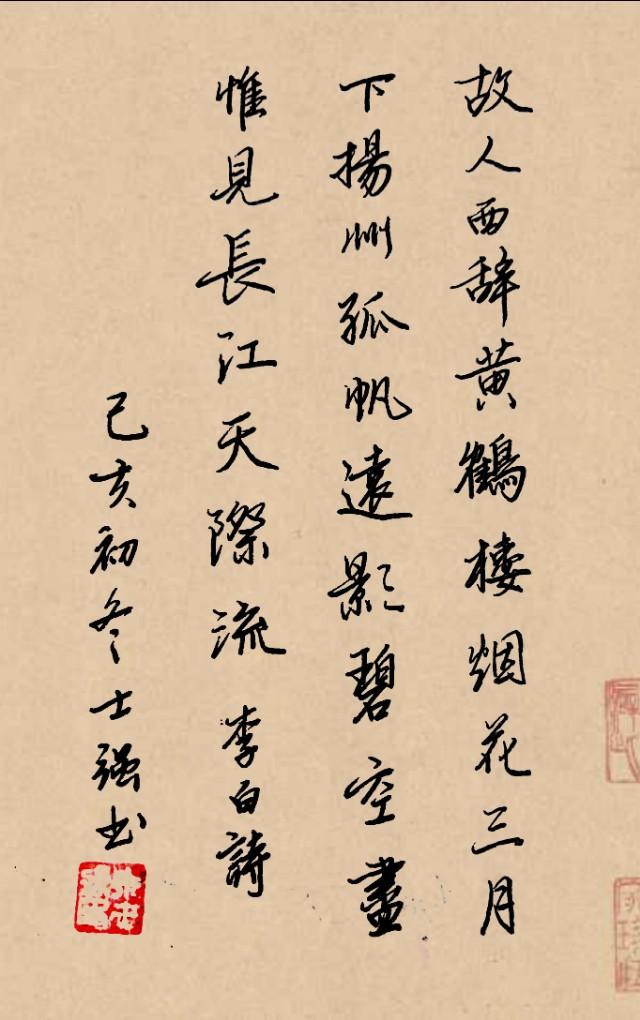 故人西辞黄鶴楼烟花三月
下揚州孤帆遠影碧空盡
惟見長江天際流 李白詩
己亥初冬士強书